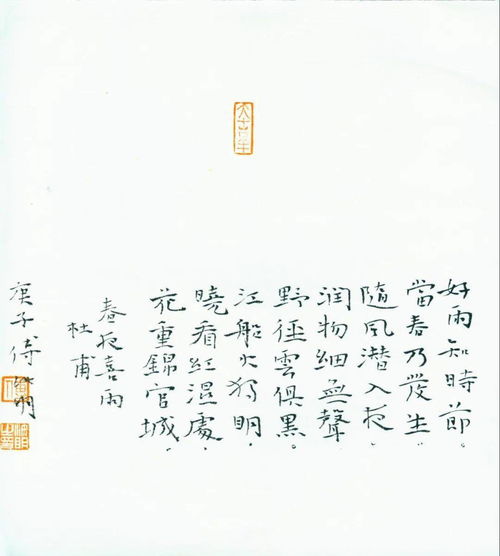 好雨知時節
當春乃發生
隨風潛入夜
润物细無聲
野徑雲俱黑
江船火獨明
曉看紅濕處
花重錦官城
春夜喜雨
杜甫
庚子倚
明